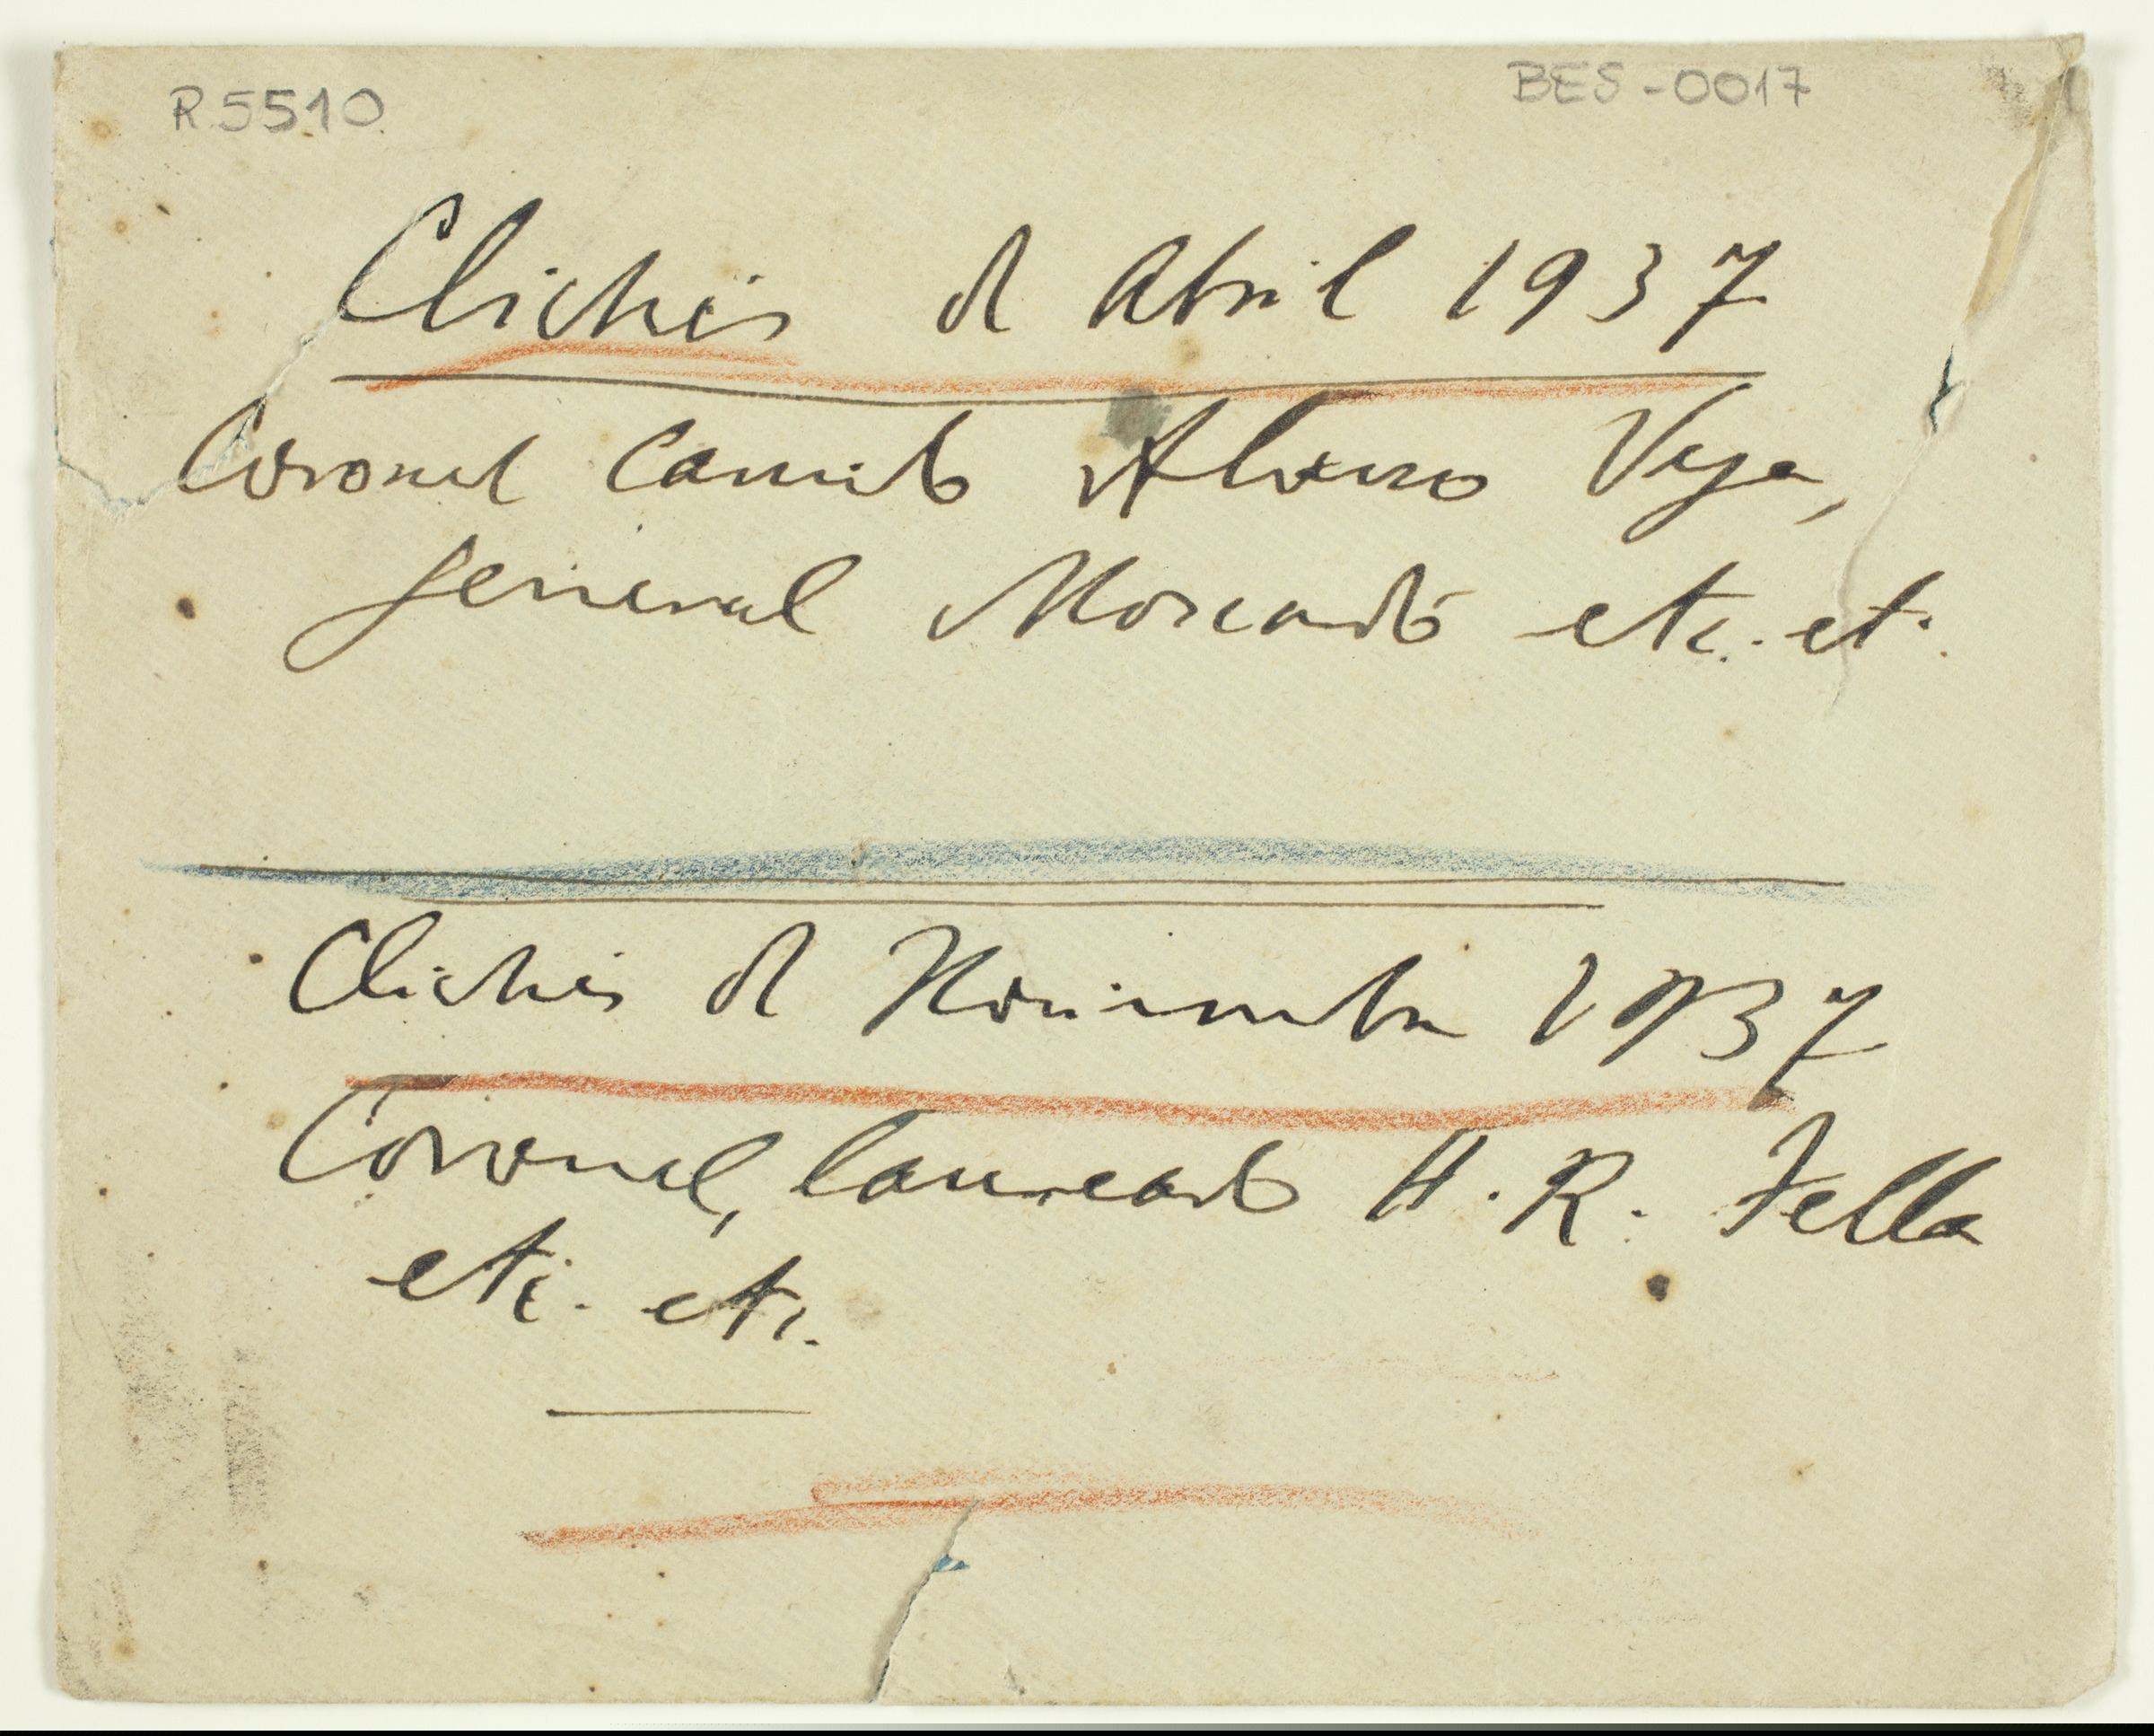 R.5510
BES-0017
Clichés d Abril 1937
Coronel Camilo Alonso Vega,
general Moscardó etc. et.
Clichés d Noviembre 1937
Coronel, laureado H. R. Tella
etc. etc.